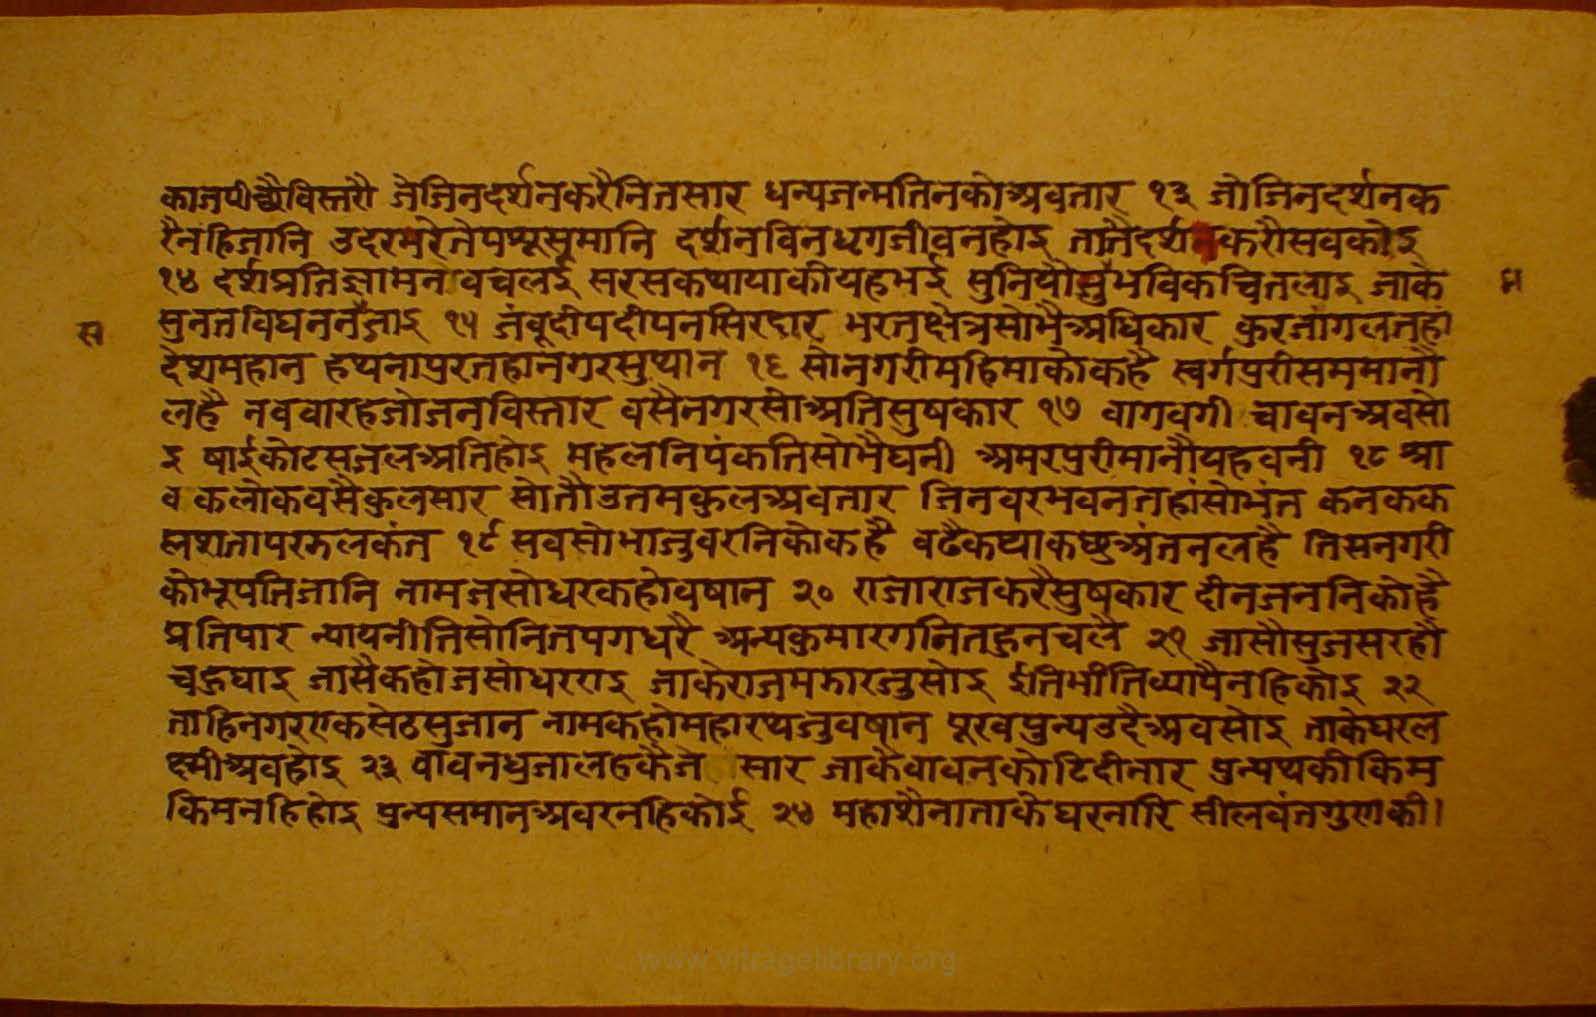 काजपीछैविस्तरौ जेजिनदर्शनकरैनितसार धन्यजन्मतिनकोअवतार १३ जोजिनदर्शनक
रैनंहिजानि उदरभरेतेपशूसमानि दर्शनविनधृगजीवनहोइ तातैदर्शनकरौसवकोइ
१४ दर्शप्रतिज्ञामन वचलई सरसकथायाकीयहभई सुनियोसुभविकचितलाइ जाके
सुनतविघननजाइ १५ जंवूदीपदीपनसिरदार भरतक्षेत्रसोभैअधिकार कुरजांगलतहां
देशमहान हथनापुरतहानगरसुथान १६ सोनगरीमहिमाकोकहै स्वर्गपुरीसममानौ
लहै नववारहजोजनविस्तार वसैनगरसोअतिसुषकार १७ वागवगीचावनअवसो
इ षाईकोटसजलअतिहोइ महलनिपंकतिसोभैघनी अमरपुरीमानौयहवनी १८ श्रा
वकलोकवसैकुलसार सोतौउतमकुलअवतार जिनवरभवनतहांसोभंत कनकक
लशतापरझलकंत १९ सवसोभाजुवरनिकोकहै वढैकथाकछुअंतनलहै तिसनगरी
कोभूपतिजानि नामजसोधरकहोवषान २० राजाराजकरैसुषकार दीनजननिकोहै
प्रतिपार न्यायनीतिसोनितपगधरै अन्यकुमारगनितहुनचलै २१ जासौसुजसरहौ
चहुघाइ जासैकहोजसोधरराइ जाकेराजमझारजुसोइ ईतिभीतिव्यापैनहिकोइ २२
ताहिनगरएकसेठसुजान नामकहोमहारथजुवषान पूरवपुन्यउदैअवसोइ ताकेघरल
क्ष्मीअवहोइ २३ वावनधुजालहकैज सार जाकेवावनकोटिदीनार पुन्यथकीकिम
किमनहिहोइ पुन्यसमानअवरनहिकोई २४ महाशैनाताकेघरनारि सीलवंतगुणकी।
स